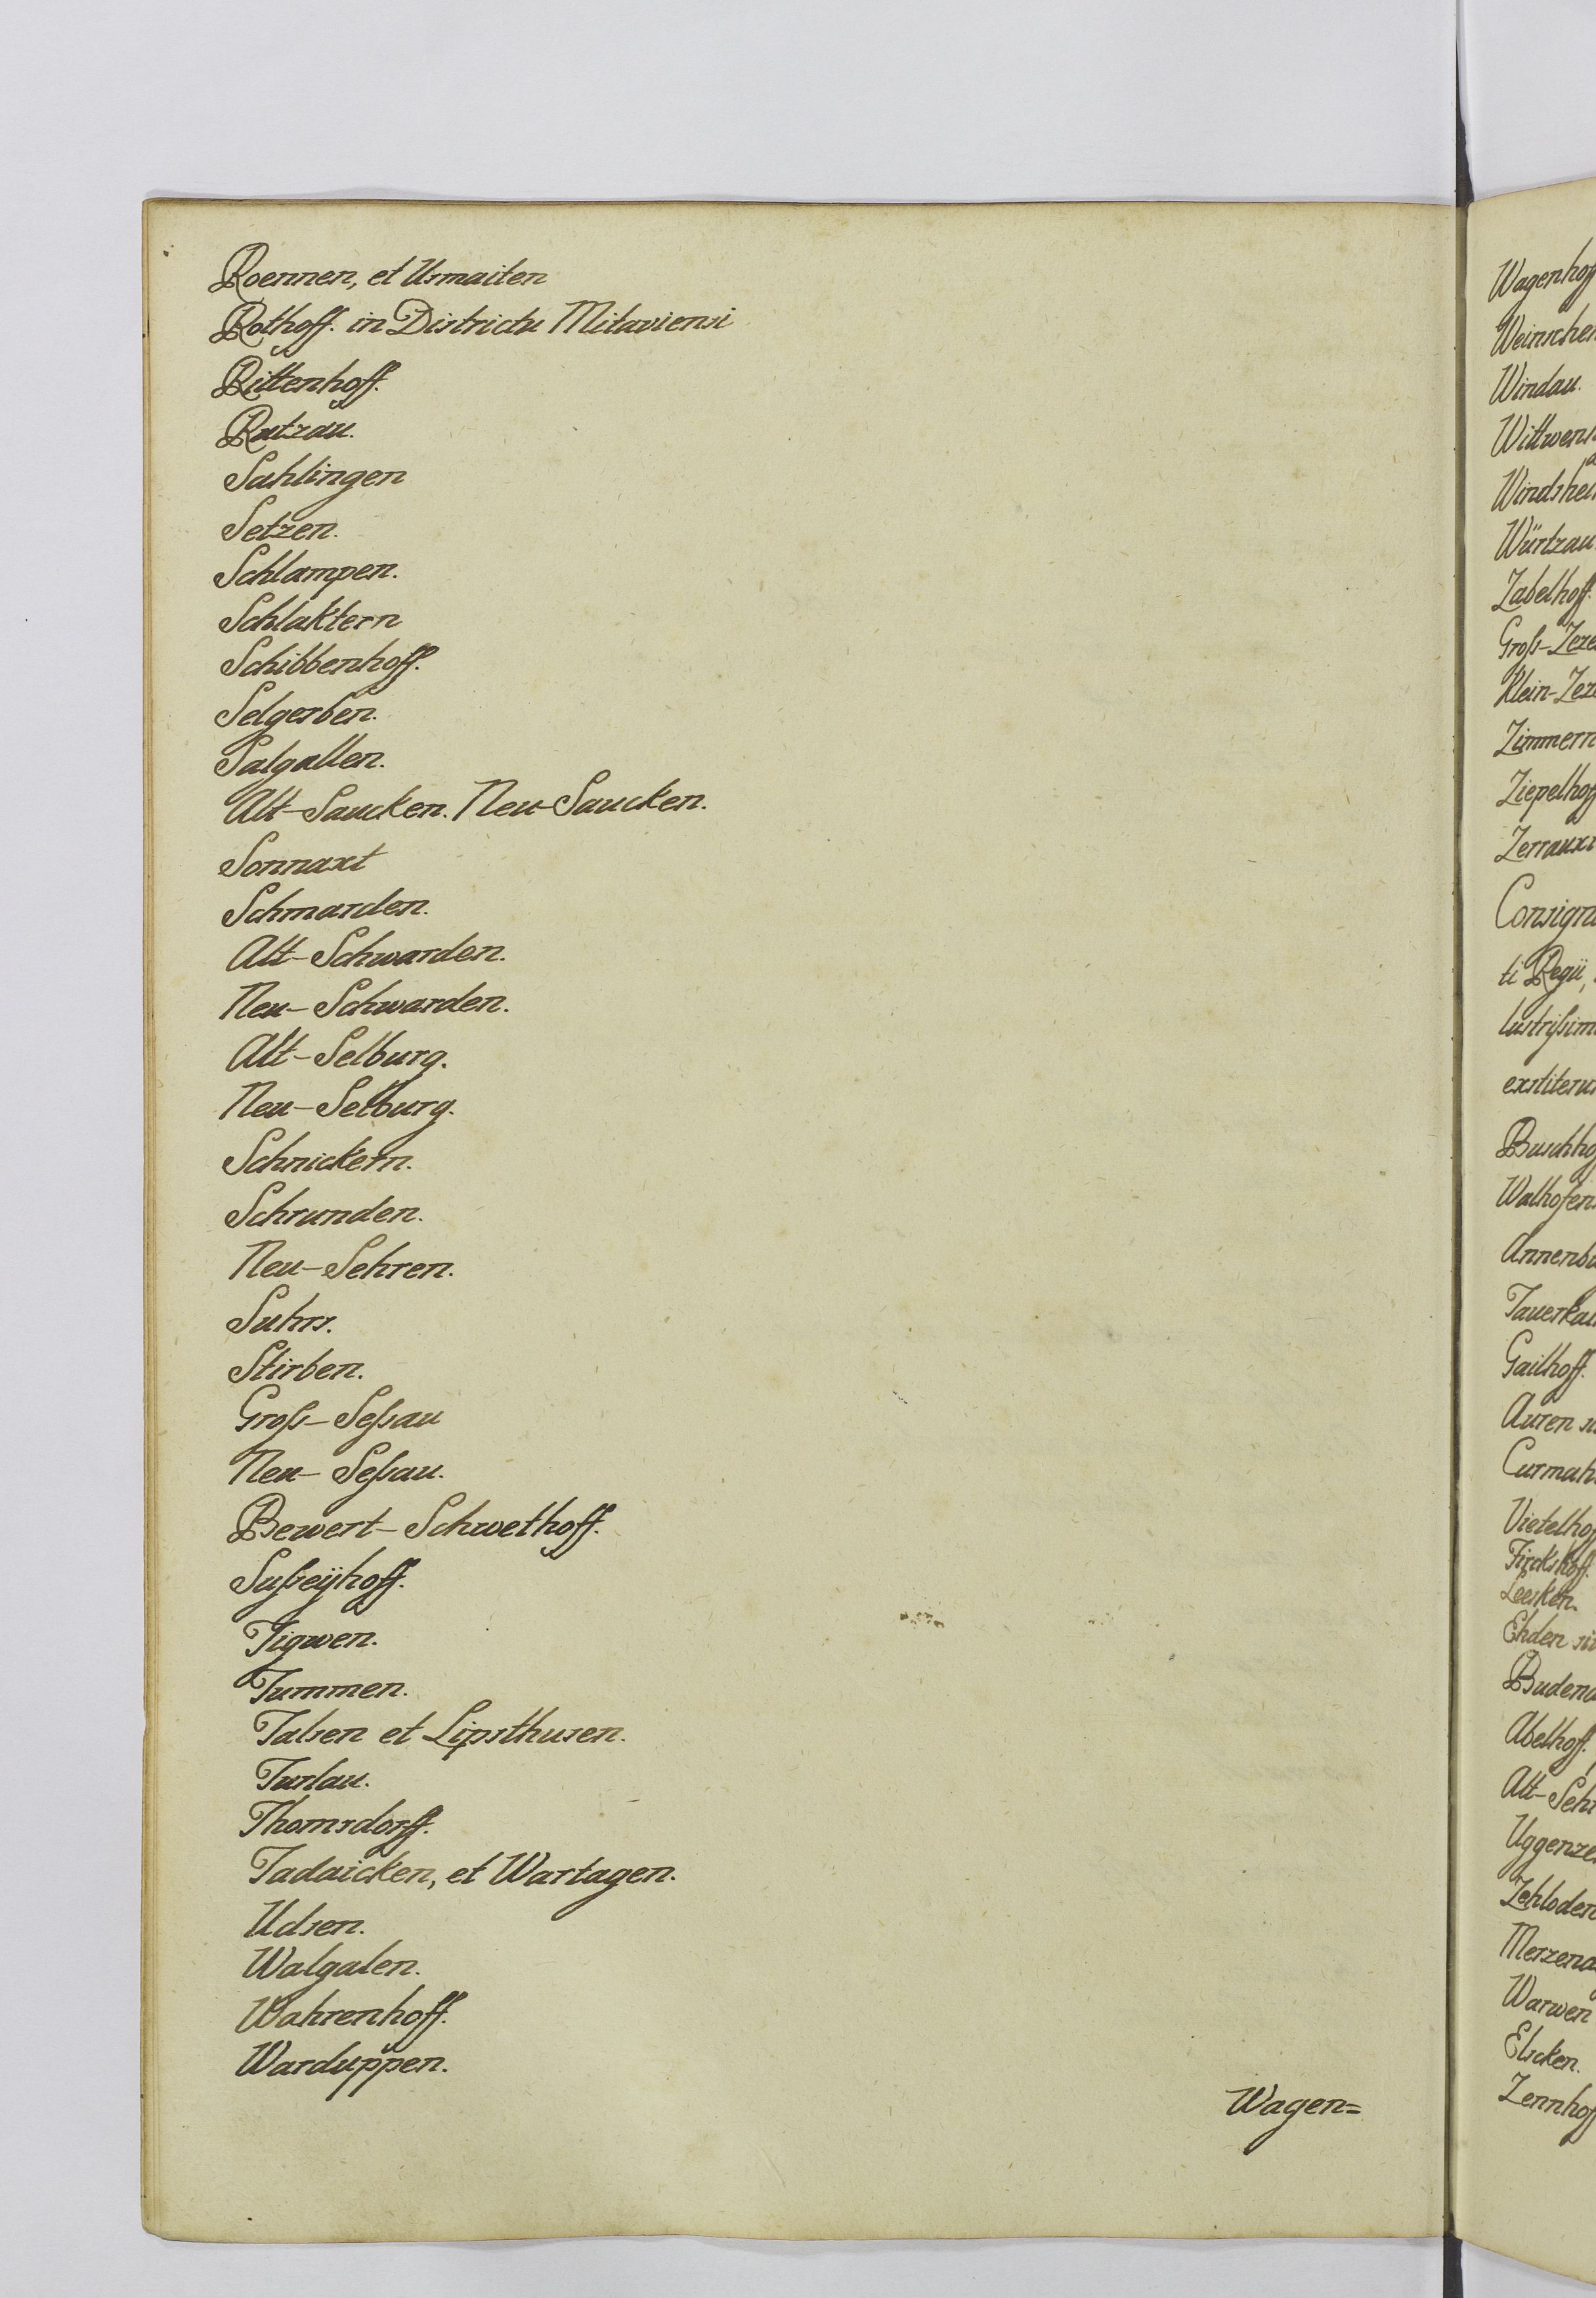 Roennen, et Usmaiten
Rothoff. in Districtu Mitaviensi
Rittenhoff.
Rutzau.
Sahlingen
Setzen.
Schlampen.
Schlaktern
Schibbenhoff.
Selgerben.
Salgallen.
Alt-Saucken. Neu-Saucken.
Sonnaxt
Schmarden.
Alt-Schwarden.
Neu-Schwarden.
Alt-Selburg.
Neu-Selburg.
Schnickern.
Schrunden.
Neu-Sehren.
Suhrs.
Stirben.
Groß-Seßau
Neu-Seßau.
Bewert-Schwethoff.
Sußeÿhoff.
Tigwen.
Tummen.
Talsen et Lipsthusen.
Turlau.
Thomsdorff.
Tadaicken, et Wartagen.
Udsen.
Walgalen.
Wahrenhoff.
Warduppen.
Wagen=
Wagenhoff
Weinschen
Windau.
Wittwens
Windshe
Würtzau
Zabelhoff.
Groß-Zeze
Klein-Zez
Zimmern
Ziepelhoff
Zerrauxt
Consigna
ti Regii,
lustrißim
exstiteru
Buschho
Walhofen
Annenbu
Tauerkal
Gailhoff.
Auren
Curmah
Vietelhof
Fircks hoff.
Leesken.
Ehden
Budena
Abelhoff.
Alt-Sehr
Uggenze
Zehloden
Merzena
Warwen
Elscken.
Zennhoff